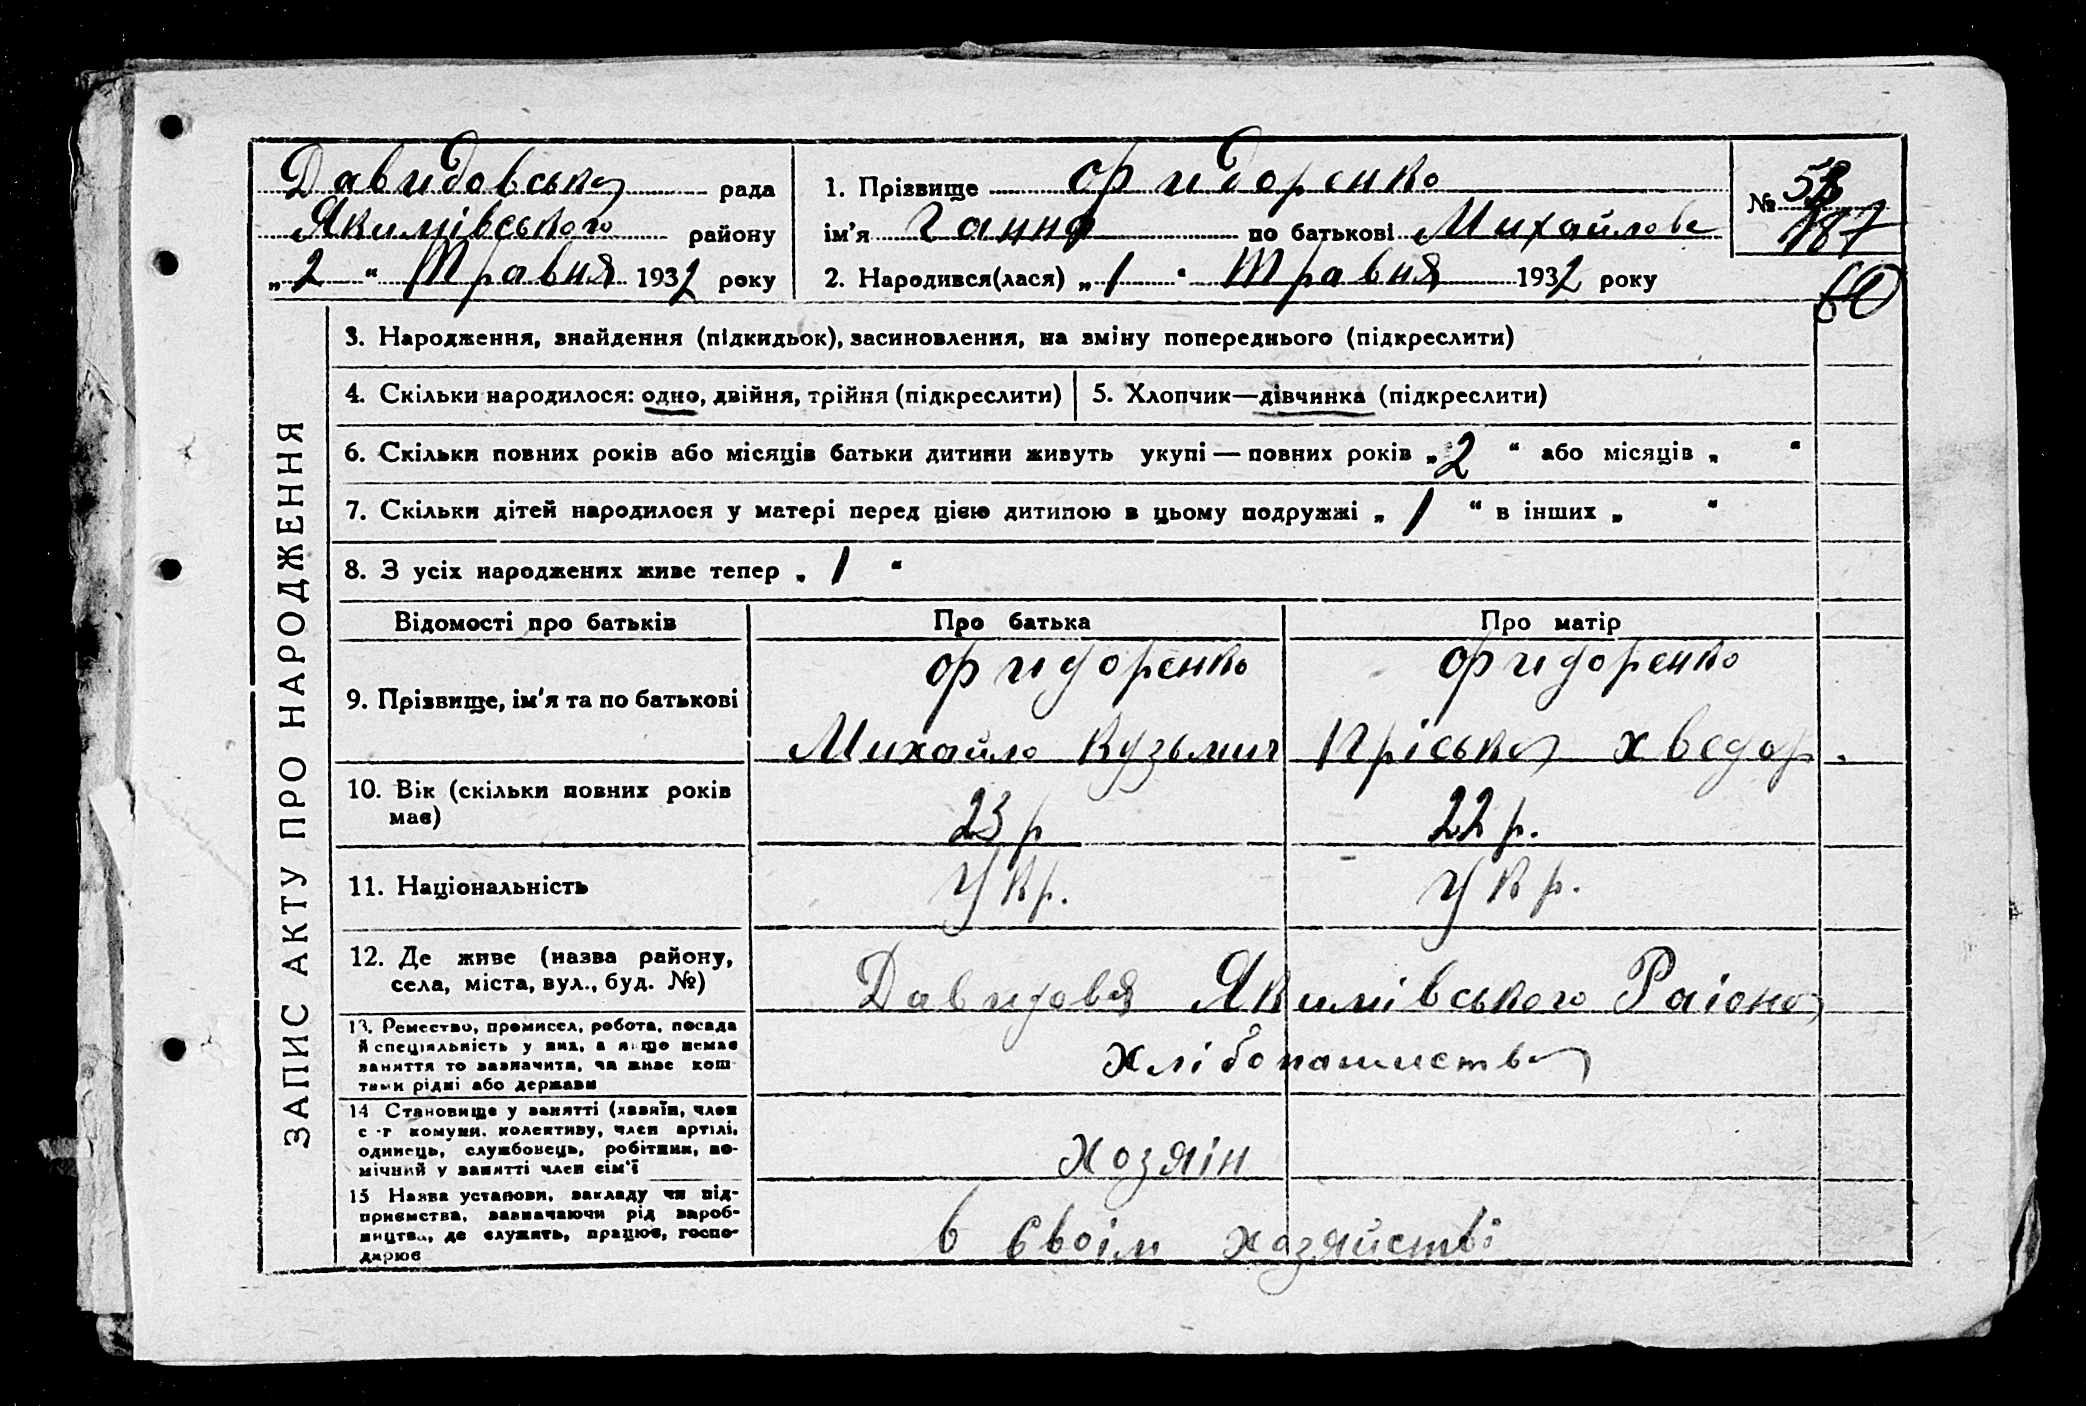 Давидовська рада
Якимівського району
„2“ Травня 1932 року
1. Прізвище Фидоренко
ім'я Ганна по батькові Михайлове
2. Народився(лася) „1“ Травня 1932 року
№ 58
187
60
ЗАПИС АКТУ ПРО НАРОДЖЕННЯ
3. Народження, знайдення (підкидьок), засиновлення, на зміну попереднього (підкреслити)
4. Скільки народилося: одно, двійня, трійня (підкреслити)
5. Хлопчик—дівчинка (підкреслити)
6. Скільки повних років або місяців батьки дитини живуть укупі — повних років „2“ або місяців „ “
7. Скільки дітей народилося у матері перед цією дитиною в цьому подружжі „1“ в інших „ “
8. З усіх народжених живе тепер „1“
Відомості про батьків Про батька Про матір
9. Прізвище, ім'я та по батькові
Фидоренко Фидоренко
Михайло Кузьмич Пріська Хведор.
10. Вік (скільки повних років
має)
23 р 22 р.
11. Національність Укр. Укр.
12. Де живе (назва району,
села, міста, вул., буд. №)
Давидовя Якимівського Раіона
13. Ремество, промисел, робота, посада
й спеціяльність у них, а якщо немає
заняття то зазначити, чи живе кош-
тами рідні або держави
Хлібопашиства
14 Становище у занятті (хазяїн, член
с.-г комуни, колективу, член артілі,
одинець, службовець, робітник, по-
мічний у занятті член сім'ї
Хозяін
15 Назва установи, закладу чи під-
приємства, зазначаючи рід вироб-
ництва, де служить, працює, госпо-
дарює
в своім хозяйстві